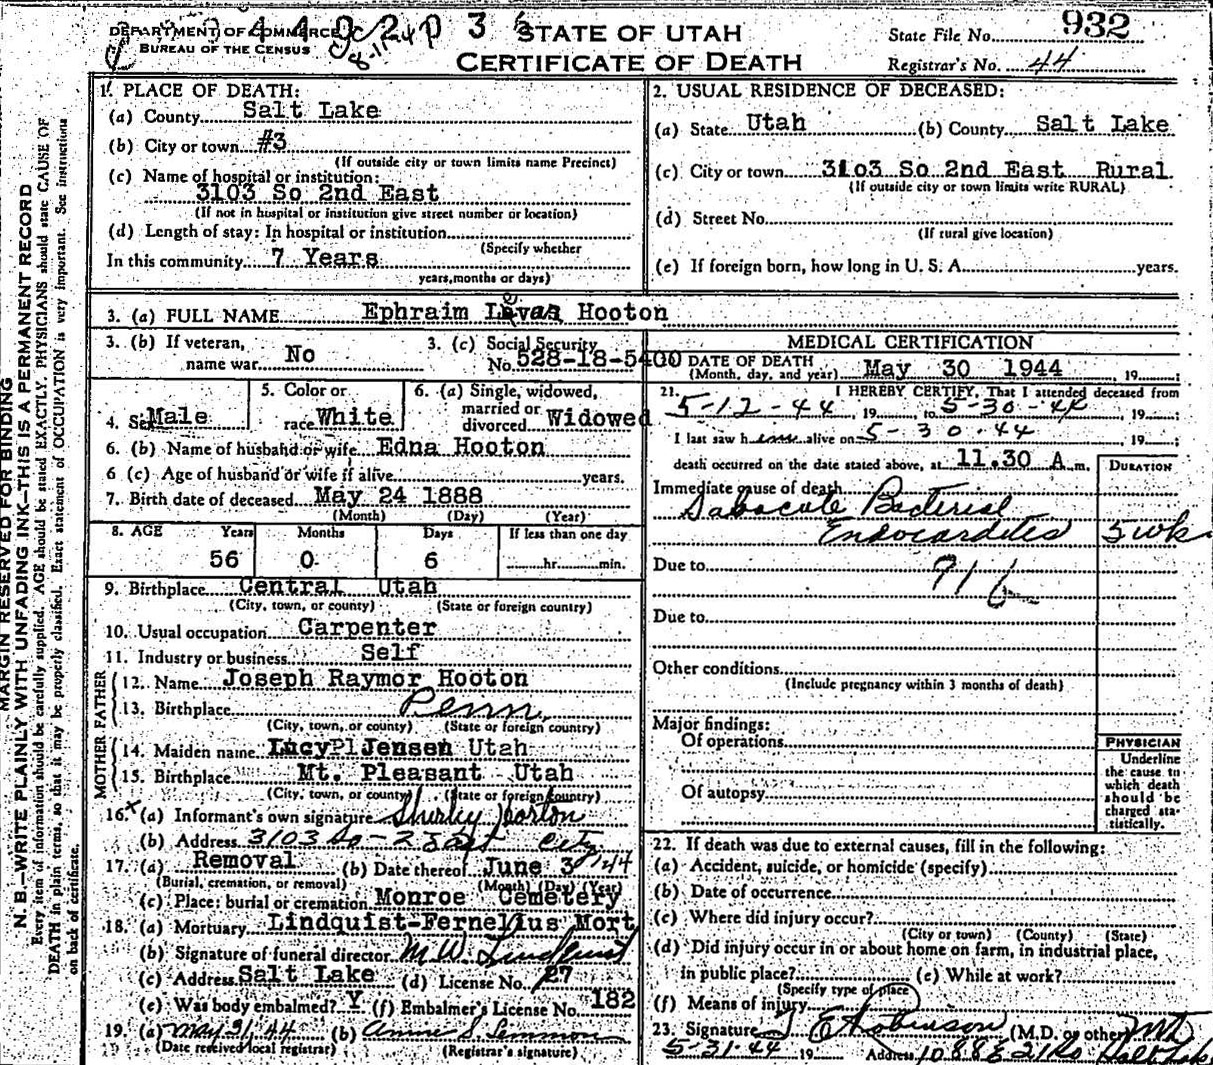 DEPARTMENT OF COMMERCE
BUREAU OF THE CENSUS
STATE OF UTAH
CERTIFICATE OF DEATH
State File No. 932
Registrar's No. 44
MARGIN RESERVED FOR BINDING
N. B.—WRITE PLAINLY WITH UNFADING INK—THIS IS A PERMANENT RECORD
Every item of information should be carefully supplied. AGE should be stated EXACTLY. PHYSICIANS should state CAUSE OF
DEATH in plain terms, so that it may be properly classified. Exact statement of OCCUPATION is very important. See instructions
on back of certificate.
1. PLACE OF DEATH:
(a) County Salt Lake
(b) City or town #3
(If outside city or town limits name Precinct)
(c) Name of hospital or institution:
3103 So 2nd East
(If not in hospital or institution give street number or location)
(d) Length of stay: In hospital or institution
(Specify whether
In this community 7 Years
years, months or days)
2. USUAL RESIDENCE OF DECEASED:
(a) State Utah (b) County Salt Lake
(c) City or town 3103 So 2nd East Rural
(If outside city or town limits write RURAL)
(d) Street No.
(If rural give location)
(e) If foreign born, how long in U. S. A. years.
3. (a) FULL NAME Ephraim Hooton
3. (b) If veteran, name war No
3. (c) Social Security No. 528-18-5400
4. Sex Male
5. Color or race White
6. (a) Single, widowed, married or divorced Widowed
6. (b) Name of husband or wife Edna Hooton
6 (c) Age of husband or wife if alive years.
7. Birth date of deceased May 24 1888
(Month) (Day) (Year)
8. AGE Years Months Days If less than one day
56 0 6 hr. min.
9. Birthplace Central Utah
(City, town, or county) (State or foreign country)
10. Usual occupation Carpenter
11. Industry or business Self
FATHER
12. Name Joseph Raymor Hooton
13. Birthplace Penn.
(City, town, or county) (State or foreign country)
MOTHER
14. Maiden name Lucy Jensen Utah
15. Birthplace Mt. Pleasant Utah
(City, town, or county) (State or foreign country)
16. (a) Informant's own signature Shirley Horton
(b) Address 3103 So - 2 East City
17. (a) Removal (b) Date thereof June 3 / 44
(Burial, cremation, or removal) (Month) (Day) (Year)
(c) Place: burial or cremation Monroe Cemetery
18. (a) Mortuary Lindquist-Fernelius Mort
(b) Signature of funeral director M. W. Lindquist
(c) Address Salt Lake (d) License No. 27
(e) Was body embalmed? Y (f) Embalmer's License No. 182
19. (a) May 31, 44 (b) Anne S. Lemmon
(Date received local registrar) (Registrar's signature)
MEDICAL CERTIFICATION
DATE OF DEATH
(Month, day, and year) May 30 1944, 19
21. I HEREBY CERTIFY, That I attended deceased from
5-12-44, 19, to 5-30-44, 19;
I last saw him alive on 5-30-44, 19;
death occurred on the date stated above, at 11.30 A.m.
DURATION
Immediate cause of death
Subacute Bacterial
Endocarditis 5 wks
Due to 91b
Due to
Other conditions
(Include pregnancy within 3 months of death)
Major findings:
Of operations
Of autopsy
PHYSICIAN
Underline
the cause to
which death
should be
charged sta-
tistically.
22. If death was due to external causes, fill in the following:
(a) Accident, suicide, or homicide (specify)
(b) Date of occurrence
(c) Where did injury occur?
(City or town) (County) (State)
(d) Did injury occur in or about home on farm, in industrial place,
in public place? (e) While at work?
(Specify type of place
(f) Means of injury
23. Signature Robinson (M.D. or other) MD
5-31-44 19 Address 1088 E 21 So Salt Lake